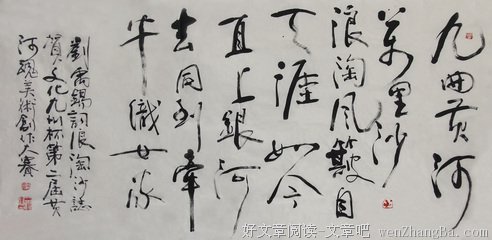 九曲黄河
萬里沙
浪淘风簸自
天涯如今
直上銀河
去同到牽
牛織女家
劉禹錫詞浪淘沙誌
賀文化九州杯第二届黄
河魂美術創作大賽
好文章阅读-文章吧 wenZhangBa.com